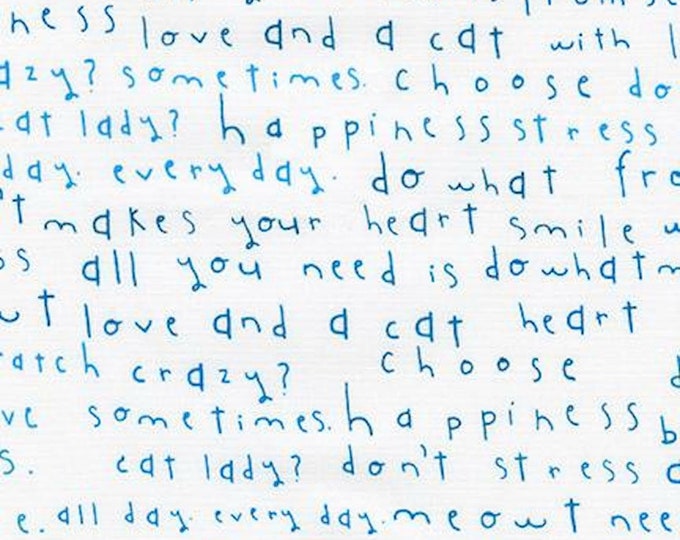 ness love and a cat with l
azy? sometimes. choose do
cat lady? happiness stress
day. every day. do what fro
't makes your heart smile w
os all you need is do what m
ut love and a cat heart
ratch crazy? choose d
ve sometimes. happiness b
s. cat lady? don't stress
e. all day. every day. meowt nee